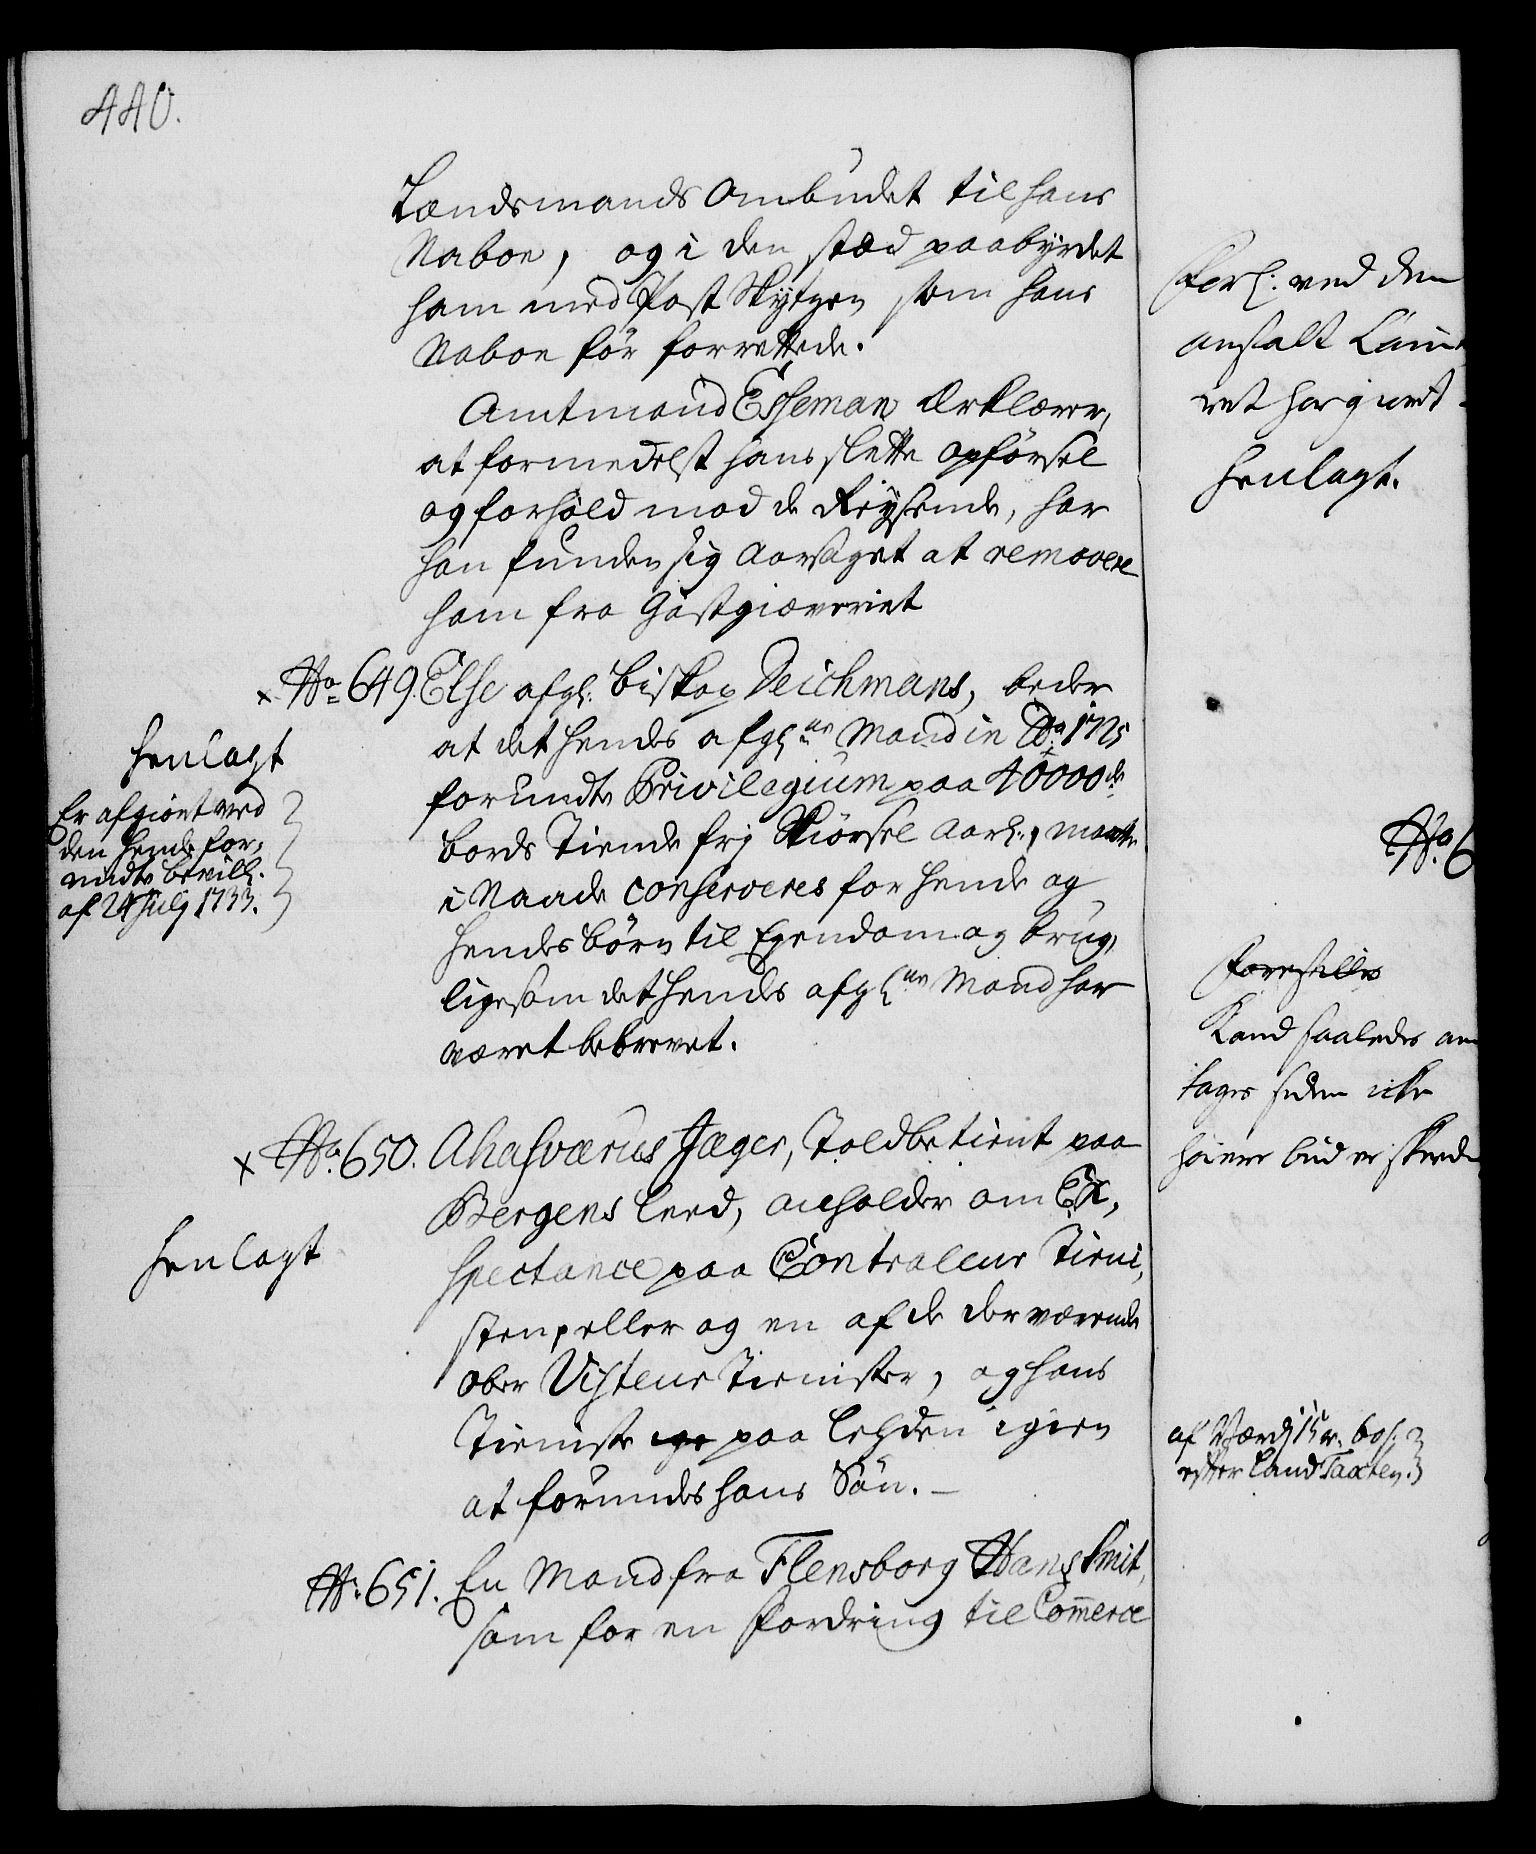 440.
Lændsmands Ombudet til hans
Naboe, og i den stæd paabyrdet
ham med Post Skytzen som hans
Naboe før forrettede.
Amtmand Esseman Erklærer,
at formedelst hans slette opførsel
og forhold mod de Reysende, har
han funden sig Aarsaget at removere
ham fra Gæstgiæveriet
x No 649. Else afgl. Biskop Deichmans, beder
at det hendes afgl. Mand in Ao 1725
forundte Privilegium paa 40000de
bords Tiende frj Skiørsel Aarl., maatte
i Naade conserveres for hende og
hendes børn til Eyendom og brug,
ligesom det hendes afgl. Mand har
været bebrevet.
henlagt
Er afgiort ved
den hende for,
undte bevill.
af 24 Julj 1733.
x No 650. Ahasværus Jæger, Toldbetient paa
Bergens leed, anholder om Ex,
spectance paa Contraleur Tieni,
sten, eller og en af de derværende
ober Visiteur Tienister, og hans
Tieniste paa Lehden igien
at forundes hans Søn.
henlagt
No 651. En Mand fra Flensborg Hans Smit,
som for en fordring til Commerce
Forl. ved den
anstalt Cam
ret har giort
henlagt.
No 6
Forestilles
Kand saaledes an
tages siden icke
høiere bud er skeed
af Værdj 15 r. 60 s.
efter Land Taxten.